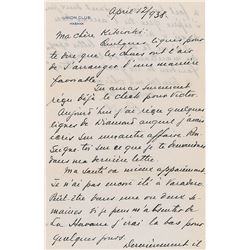 UNION CLUB
HABANA
April 12/938.
Ma chère Kikiriki
Quelques lignes pour
te dire que les choses ont l'air
de s'arranger d'une manière
favorable.
Tu auras surement
reçu déjà le chèk pour Victor.
Aujourd'hui j'ai reçu quelques
lignes de auquel j'avais
écris sur une autre affaire
que tu me demandais
dans ma dernière lettre.
Ma santé va mieux apparemment
Je n'ai pas encore été à Varadero.
Peut-être dans une ou deux se-
maines si je peux m'absenter de
La Havane j'irai là bas pour
quelques jours.
Dernièrement il